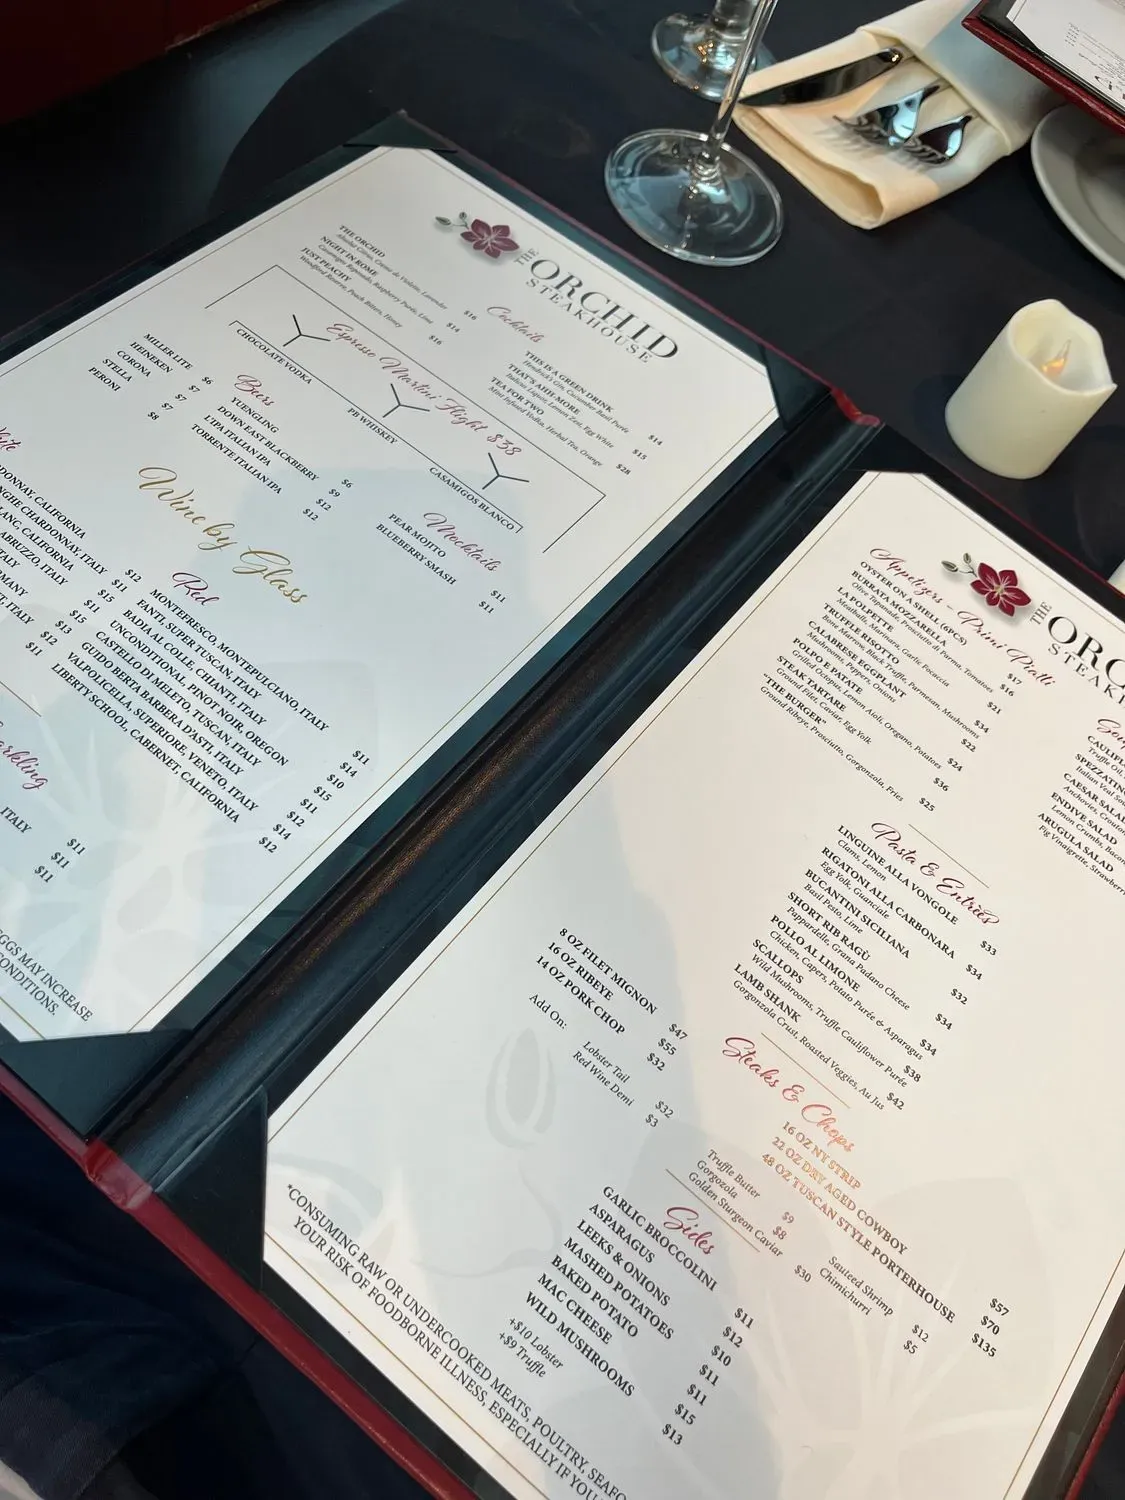 THE ORCHID
STEAKHOUSE
Cocktails
THE ORCHID
Absolut Citron, Creme de Violette, Lavender
$16
NIGHT IN ROME
Casamigos Reposado, Raspberry Purée, Lime
$14
JUST PEACHY
Woodford Reserve, Peach Bitters, Honey
$16
THIS IS A GREEN DRINK
Hendrick's Gin, Cucumber Basil Purée
$14
THAT'S AHH-MORE
Italian Liquor, Lemon Zest, Egg White
$15
TEA FOR TWO
Mint Infused Vodka, Herbal Tea, Orange
$28
Espresso Martini Flight $38
CHOCOLATE VODKA
PB WHISKEY
CASAMIGOS BLANCO
Beers
MILLER LITE $6
HEINEKEN $7
CORONA $7
STELLA $7
PERONI $8
YUENGLING $6
DOWN EAST BLACKBERRY $9
L'IPA ITALIAN IPA $12
TORRENTE ITALIAN IPA $12
Mocktails
PEAR MOJITO $11
BLUEBERRY SMASH $11
Wine by Glass
CALIFORNIA $12
CHARDONNAY, ITALY $11
CALIFORNIA $15
ABRUZZO, ITALY $11
ITALY $15
$13
ITALY $12
$11
Red
MONTEFRESCO, MONTEPULCIANO, ITALY $11
FANTI, SUPER TUSCAN, ITALY $14
BADIA AL COLLE, CHIANTI, ITALY $10
UNCONDITIONAL, PINOT NOIR, OREGON $15
CASTELLO DI MELETO, TUSCAN, ITALY $11
GUIDO BERTA BARBERA D'ASTI, ITALY $12
VALPOLICELLA, SUPERIORE, VENETO, ITALY $14
LIBERTY SCHOOL, CABERNET, CALIFORNIA $12
ITALY $11
$11
$11
EGGS MAY INCREASE
CONDITIONS.
THE
STEAK
Appetizers - Primi Piatti
OYSTER ON A SHELL (6PCS) $17
BURRATA MOZZARELLA
Olive Tapanade, Prosciutto di Parma, Tomatoes $16
LA POLPETTE
Meatballs, Marinara, Garlic Focaccia $21
TRUFFLE RISOTTO
Bone Marrow, Black Truffle, Parmesan, Mushrooms $34
CALABRESE EGGPLANT
Mushrooms, Peppers, Onions $22
POLPO E PATATE
Grilled Octopus, Lemon Aioli, Oregano, Potatoes $24
STEAK TARTARE
Ground Filet, Caviar, Egg Yolk $36
"THE BURGER"
Ground Ribeye, Prosciutto, Gorgonzola, Fries $25
Truffle Oil,
SPEZZATINO
Italian Veal
CAESAR SALAD
ENDIVE SALAD
Lemon Crumbs, Bacon
ARUGULA SALAD
Fig Vinaigrette,
Pasta & Entrées
LINGUINE ALLA VONGOLE
Clams, Lemon $33
RIGATONI ALLA CARBONARA
Egg Yolk, Guanciale $34
BUCANTINI SICILIANA
Basil Pesto, Lime $32
SHORT RIB RAGÙ
Pappardelle, Grana Padano Cheese $34
POLLO AL LIMONE
Chicken, Capers, Potato Purée & Asparagus $34
SCALLOPS
Wild Mushrooms, Truffle Cauliflower Purée $38
LAMB SHANK
Gorgonzola Crust, Roasted Veggies, Au Jus $42
Steaks & Chops
8 OZ FILET MIGNON $47
16 OZ RIBEYE $55
14 OZ PORK CHOP $32
16 OZ NY STRIP $57
22 OZ DRY AGED COWBOY $70
48 OZ TUSCAN STYLE PORTERHOUSE $135
Add On:
Lobster Tail $32
Red Wine Demi $3
Truffle Butter $9
Gorgozola $8
Golden Sturgeon Caviar $30
Sauteed Shrimp $12
Chimichurri $5
Sides
GARLIC BROCCOLINI $11
ASPARAGUS $12
LEEKS & ONIONS $10
MASHED POTATOES $11
BAKED POTATO $11
MAC CHEESE $15
WILD MUSHROOMS $13
+$10 Lobster
+$9 Truffle
*CONSUMING RAW OR UNDERCOOKED MEATS, POULTRY, SEAFO
YOUR RISK OF FOODBORNE ILLNESS, ESPECIALLY IF YOU